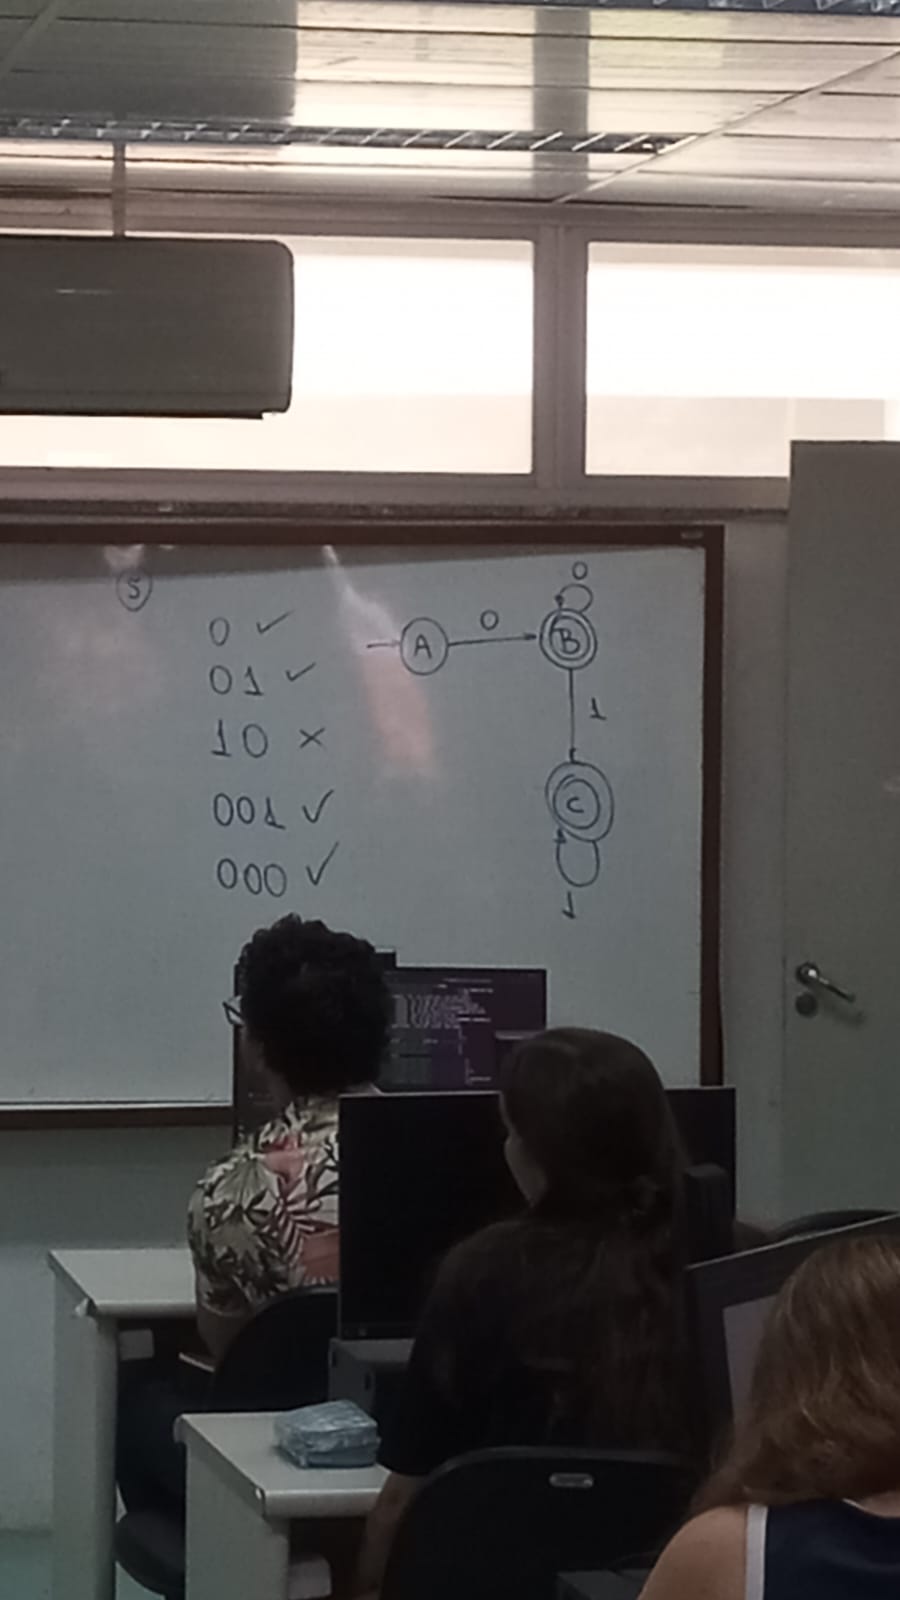 5
0 ✓
01 ✓
10 ×
001 ✓
000 ✓
A
0
B
0
1
C
1